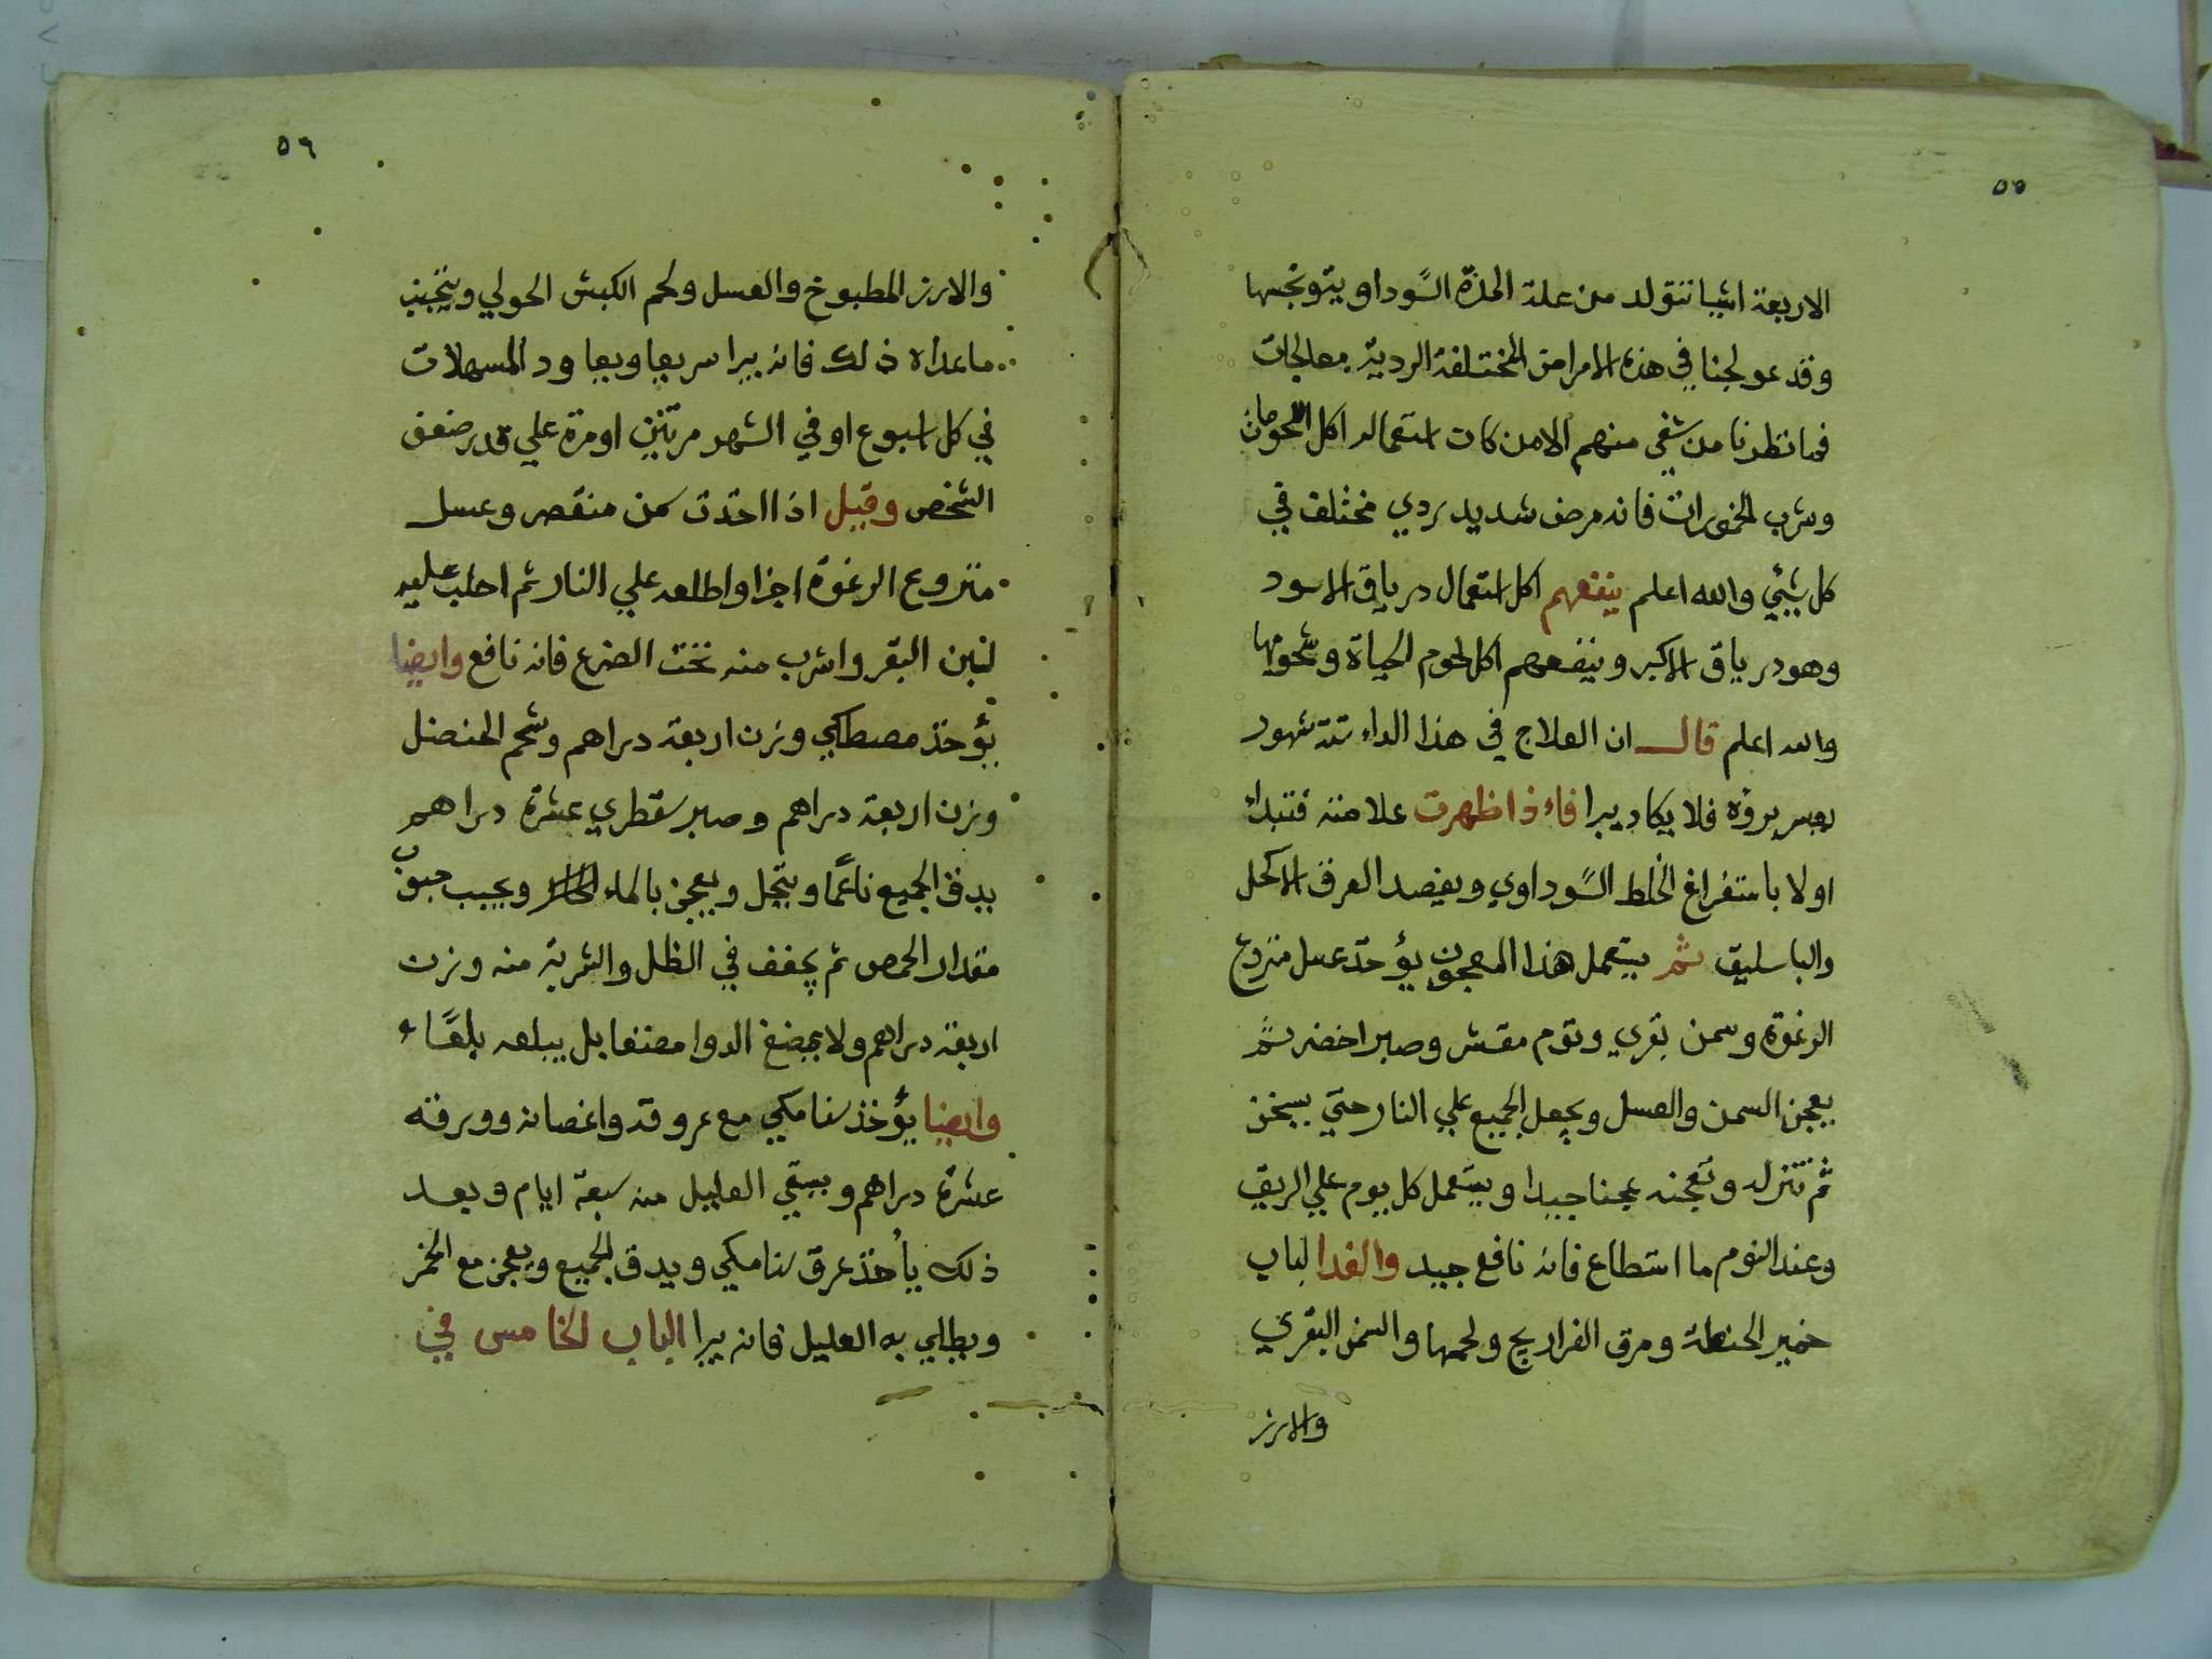 ٥٥
الاربعة اشيا تتولد من علة المرة السودا ويتوتجسها
وقد عولجنا في هذه الامراض المختلفة الردية معالجات
فما نظرنا من شفي منهم الا من كان استعماله اكل اللحومات
وشرب الخمورات فانه مرض شديد ردي مختلف في
كل شيئي والله اعلم ينفعهم اكل استعمال درياق الاسود
وهو درياق الاكبر وينفعهم اكل لحوم الحياة وشحومها
والله اعلم قال ان العلاج في هذا الداء ستة شهور
بعسر بروه فلا يكاد يبرا فاء ذا ظهرت علامته فتبداء
اولا باستفراغ الخلط السوداوي ويفصد العرق الاكحل
والباسليق ثم يستعمل هذا المعجون يؤخذ عسل منزوع
الرغوة وسمن بقري وتوم مقشر وصبر اخضر ثم
يعجن السمن والعسل ويجعل الجميع علي النار حتي يسخن
ثم تنزله وتعجنه عجنا جيدا ويستعمل كل يوم علي الريق
وعند النوم ما استطاع فانه نافع جيد والغدا لباب
خمير الحنطة ومرق الفراريج ولحمها والسمن البقري
والارز
٥٦
والارز المطبوخ والعسل ولحم الكبش الحولي ويتجنب
ما عداه ذلك فانه يبرا سريعا ويعاود المسهلات
في كل اسبوع او في الشهر مرتين او مرة علي قدر ضعف
الشخص وقيل اذا اخذت سمن منقصر وعسل
منزوع الرغوة اجزا واطلعه علي النار ثم احلب عليه
لبن البقر واشرب منه تحت الضرع فانه نافع وايضا
يؤخذ مصطكي وزن اربعة دراهم وشحم الحنضل
وزن اربعة دراهم وصبر سقطري عشرة دراهم
يدق الجميع ناعما وينخل ويعجن بالماء ويحبب حبوب
مقدار الحمص ثم يجفف في الظل والشربة منه وزن
اربعة دراهم ولا يمضغ الدوا مضغا بل يبلعه بلعًا
وايضا يؤخذ سنا مكي مع عروقه واغصانه وورقه
عشرة دراهم ويسقي العليل منه سبعة ايام وبعد
ذلك يأخذ عرق سنا مكي ويدق الجميع ويعجن مع الخمر
ويطلي به العليل فانه يبرا الباب الخامس في